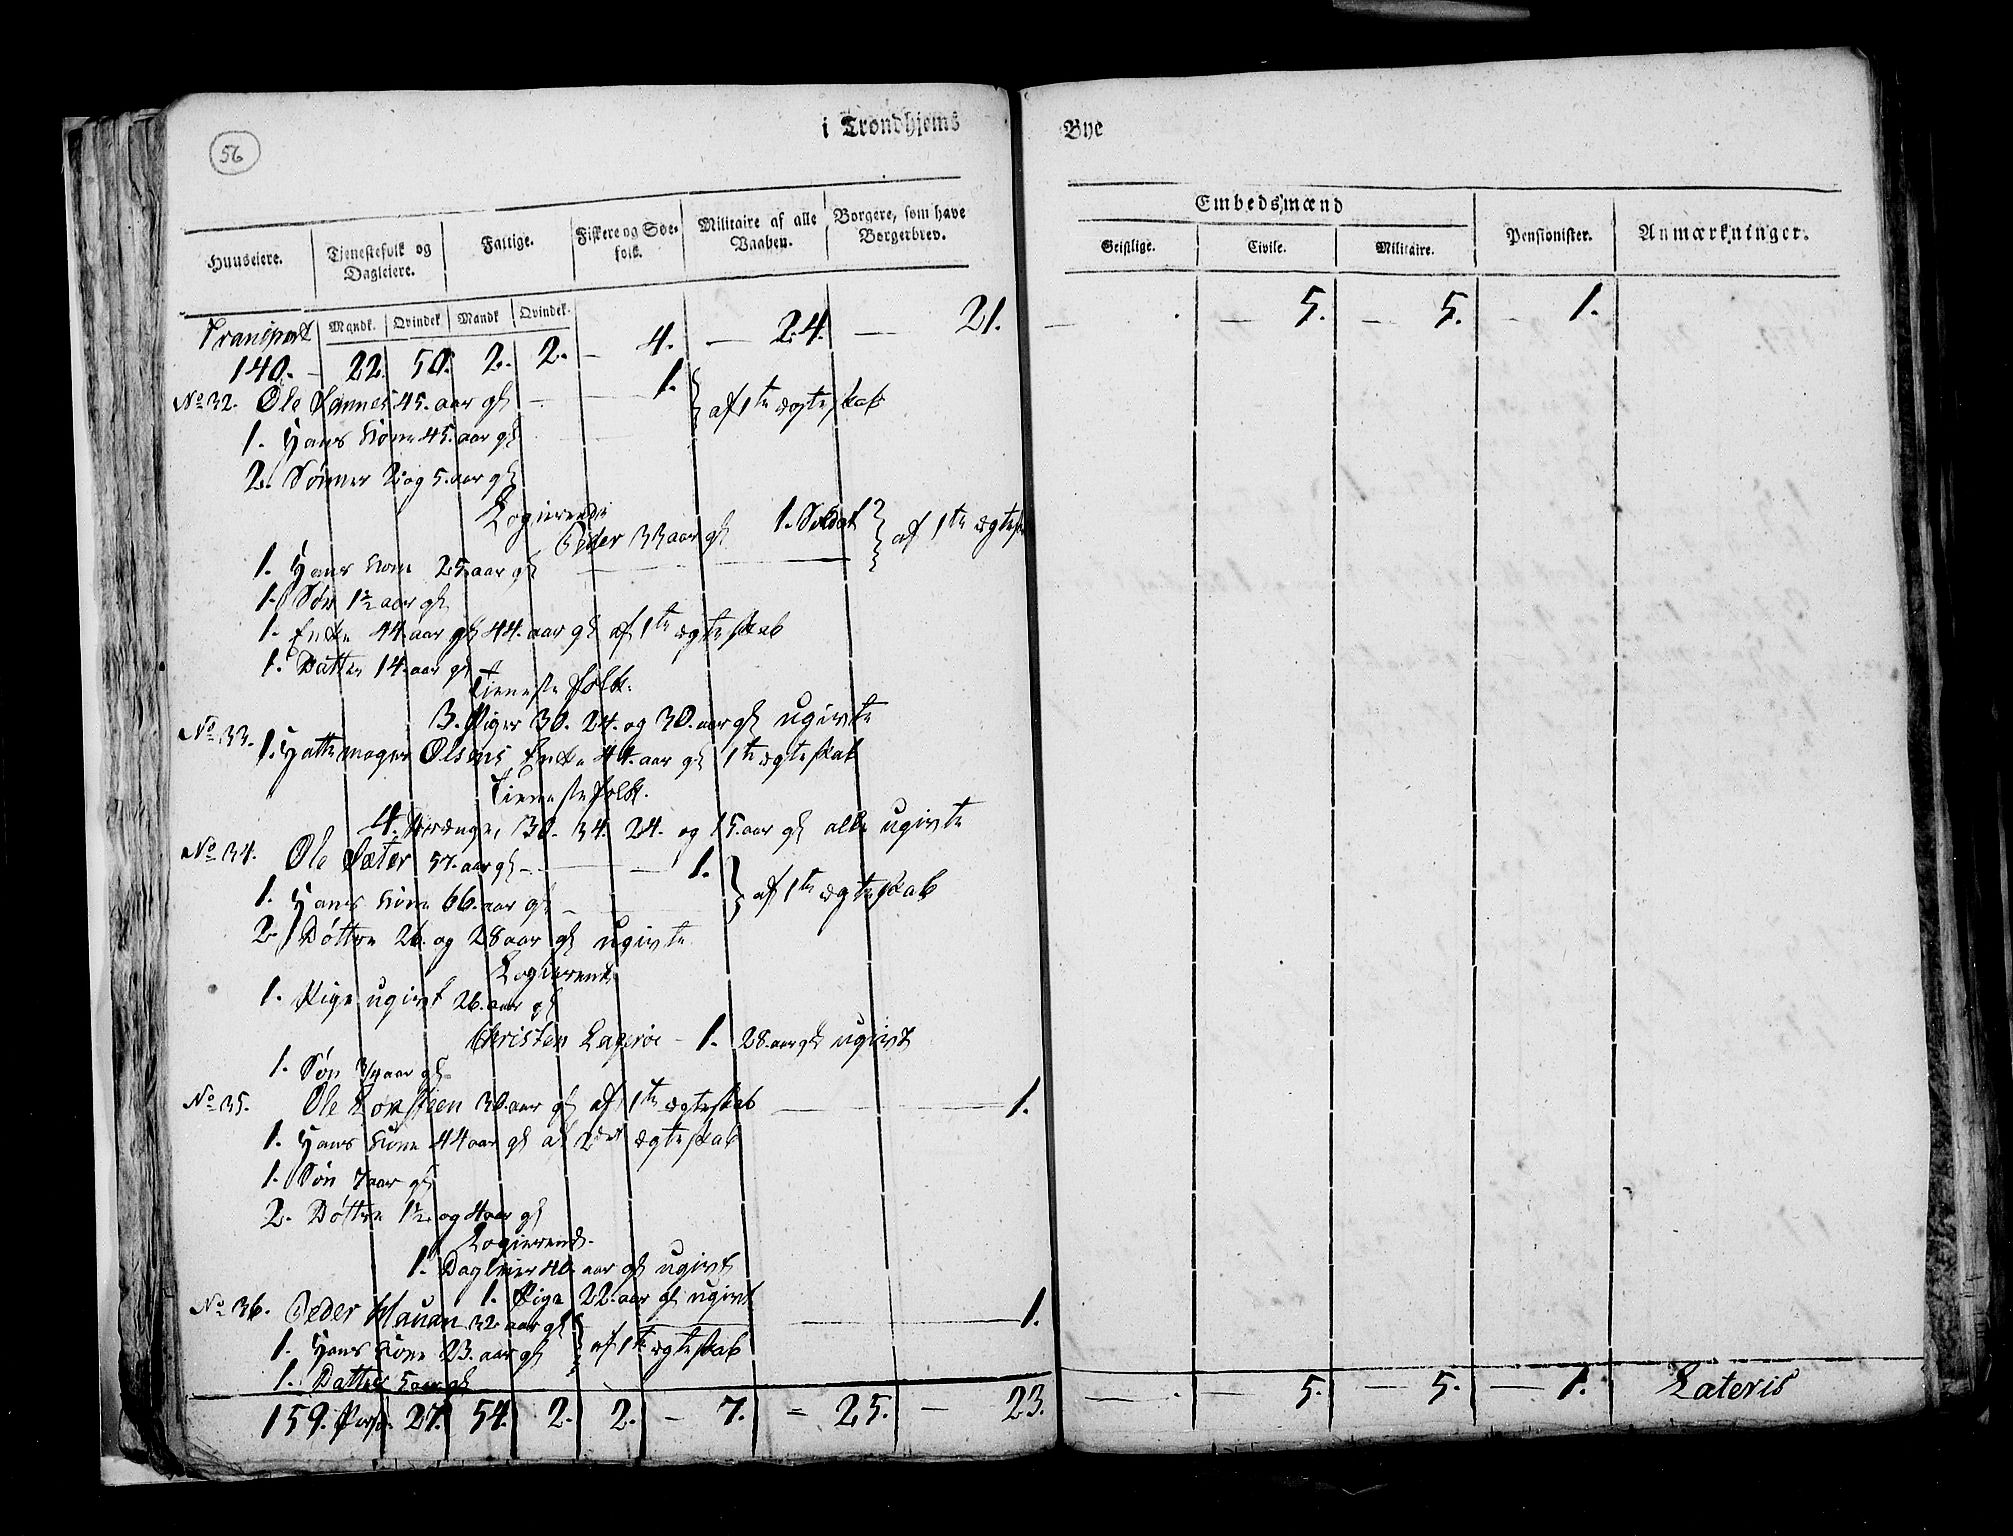 56
i Trondhjems Bye
Huuseiere. Tjenestefolk og Dagleiere. Fattige. Fiskere og Søefolk. Militaire af alle Vaaben. Borgere, som have Borgerbrev. Embedsmænd Geistlige. Civile. Militaire. Pensionister. Anmærkninger.
Mandk. Qvindek Mandk Qvindek.
Transport
140. - 22. 50. 2. 2. - 4. - 24. - 21. - . - 5. - 5. - 1.
No 32. Ole 45. aar gl - 1.
1. Hans Kone 45. aar gl } af 1te ægteskab
2. Sønner 2 og 5. aar gl
Logierende
Peder 33 aar gl 1. Soldat
1. Hans Kone 25. aar gl } af 1te
1. Søn 1½ aar gl
1. Enke 44. aar gl 44. aar gl af 1te ægteskab
1. Datter 14. aar gl
Tieneste folk.
3. Piger 30. 24. og 30. aar gl ugivte
No 33. 1. Hattemager Olsens Enke 44. aar gl 1te ægteskab
Tieneste folk.
4. Drænge, 30. 34. 24. og 15. aar gl alle ugivte
No 34. Ole Sæter 57. aar gl - 1.
1. Hans Kone 66. aar gl - } af 1te ægteskab
2. Døttre 26. og 28 aar gl ugivte
Logierende
1. Pige ugivt 26. aar gl
Christen - 1. 28. aar gl ugivt
1. Søn 3/4 aar gl
No 35. Ole 30. aar gl af 1te ægteskab - 1.
1. Hans Kone 44 aar gl af 2det ægteskab
1. Søn 7 aar gl
2. Døttre 1½ og 4 aar gl
Logierend.
1. Dagleier 40. aar gl ugivt
1. Pige 22. aar gl ugivt
No 36. Peder 32 aar gl - 1.
1. Hans Kone 23. aar gl } af 1te ægteskab
1. Datter 5 aar gl
159. Pers. 27. 54. 2. 2. - 7. - 25. - 23. - . - 5. - 5. - 1. Lateris